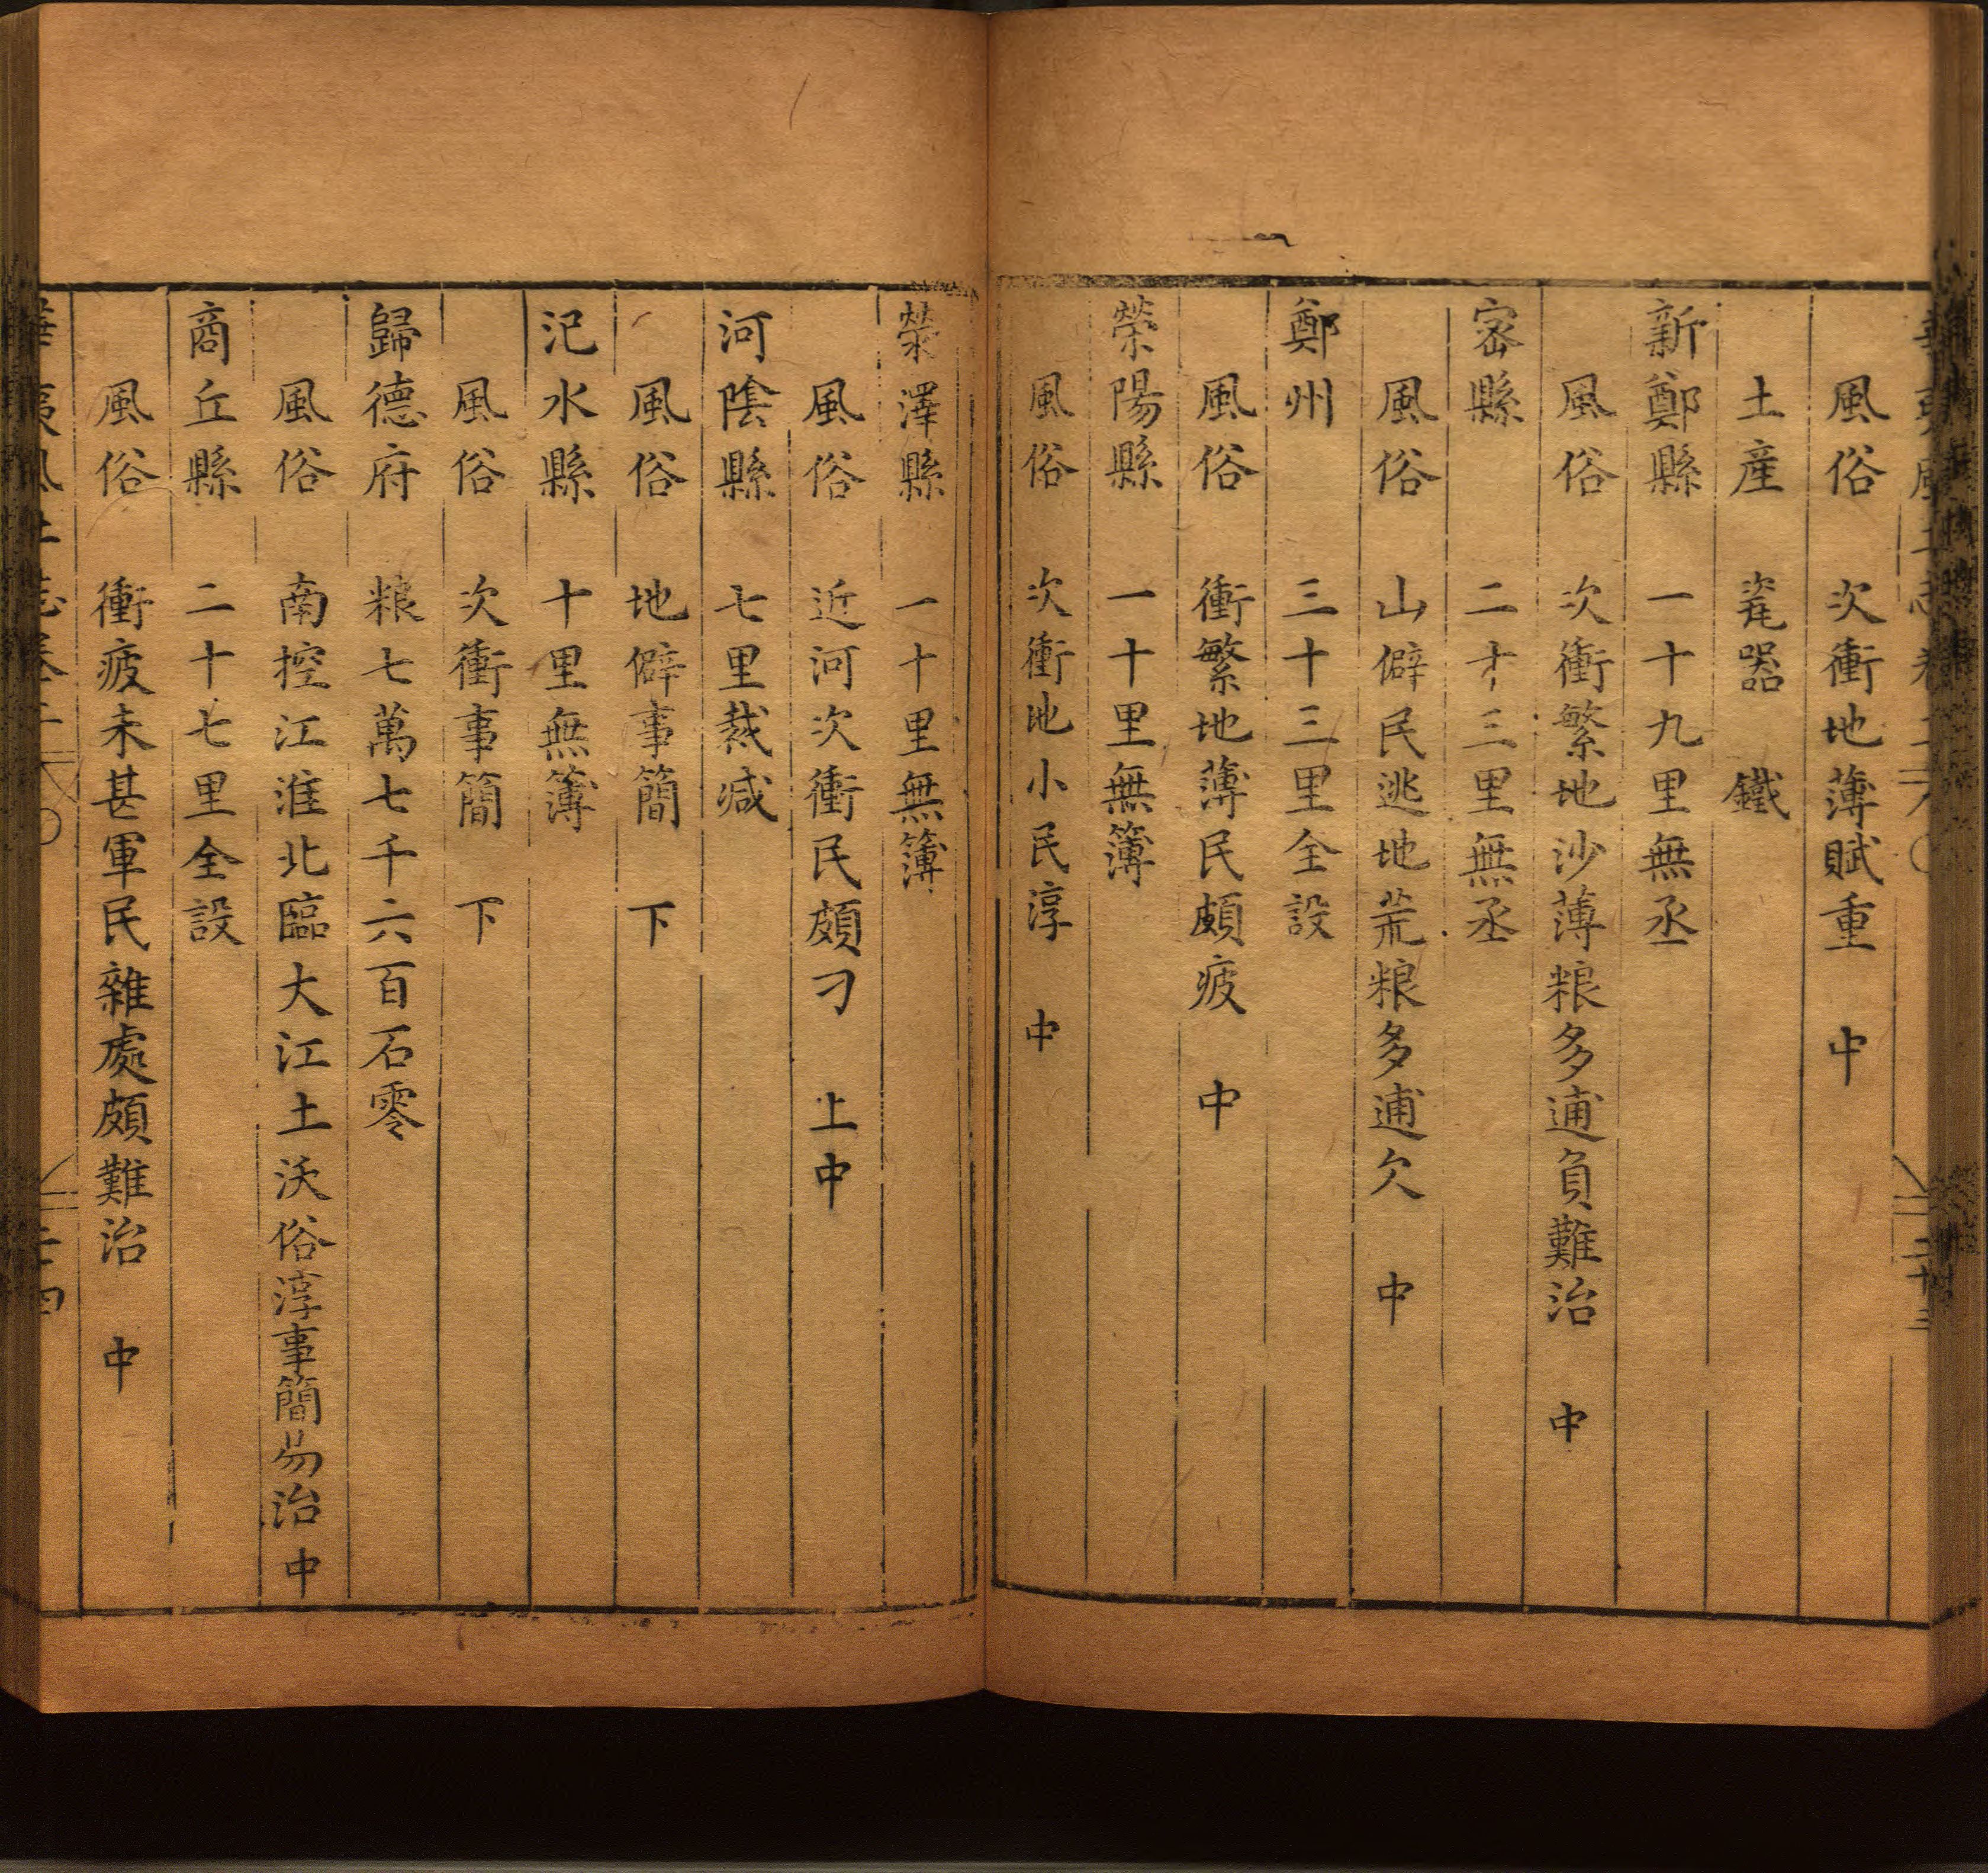 風俗 次衝地薄賦重 中
土産 瓷器 鐵
新鄭縣 一十九里無丞
風俗 次衝繁地沙薄粮多逋負難治 中
密縣 二十三里無丞
風俗 山僻民逃地荒粮多逋欠 中
鄭州 三十三里全設
風俗 衝繁地薄民頗疲 中
滎陽縣 一十里無簿
風俗 次衝地小民淳 中
滎澤縣 一十里無簿
風俗 近河次衝民頗刁 上中
河陰縣 七里裁减
風俗 地僻事簡 下
汜水縣 十里無簿
風俗 次衝事簡 下
歸德府 粮七萬七千六百石零
風俗 南控江淮北臨大江土沃俗淳事簡易治 中
商丘縣 二十七里全設
風俗 衝疲未甚軍民雜處頗難治 中